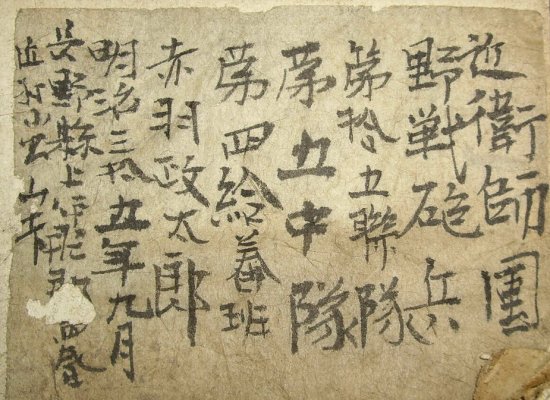 近衛師團
野戦砲兵
第拾五聯隊
第五中隊
第四給養班
赤羽政太郎
明治三拾五年九月
長野縣上伊那郡西春
近村